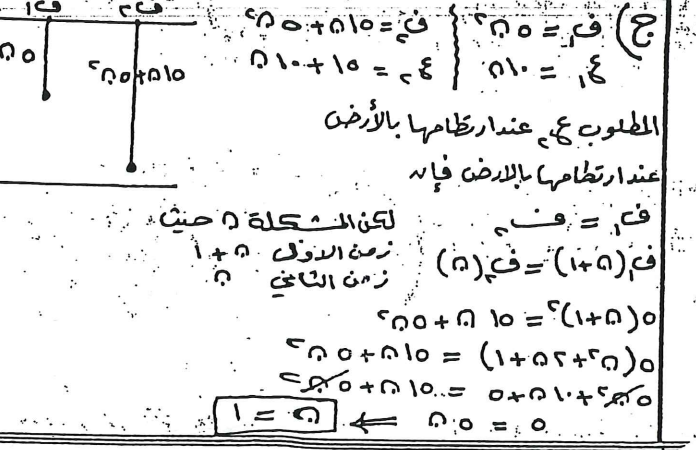 ف٢ ف١
٥ن
١٥ن+٥ن٢
ج) ف١ = ٥ن٢ ف٢ = ١٥ن+٥ن٢
ع١ = ١٠ن ع٢ = ١٥+١٠ن
المطلوب ع٢ عند ارتطامها بالأرض
عند ارتطامها بالارض فإن
ف١ = ف٢ لكن المشكلة ن حيث
زمن الاول ن+١
ف١(ن+١) = ف٢(ن) زمن الثاني ن
٥(ن+١)٢ = ١٥ن+٥ن٢
٥(ن٢+٢ن+١) = ١٥ن+٥ن٢
٥ن٢+١٠ن+٥ = ١٥ن+٥ن٢
٥ = ٥ن ← ن = ١